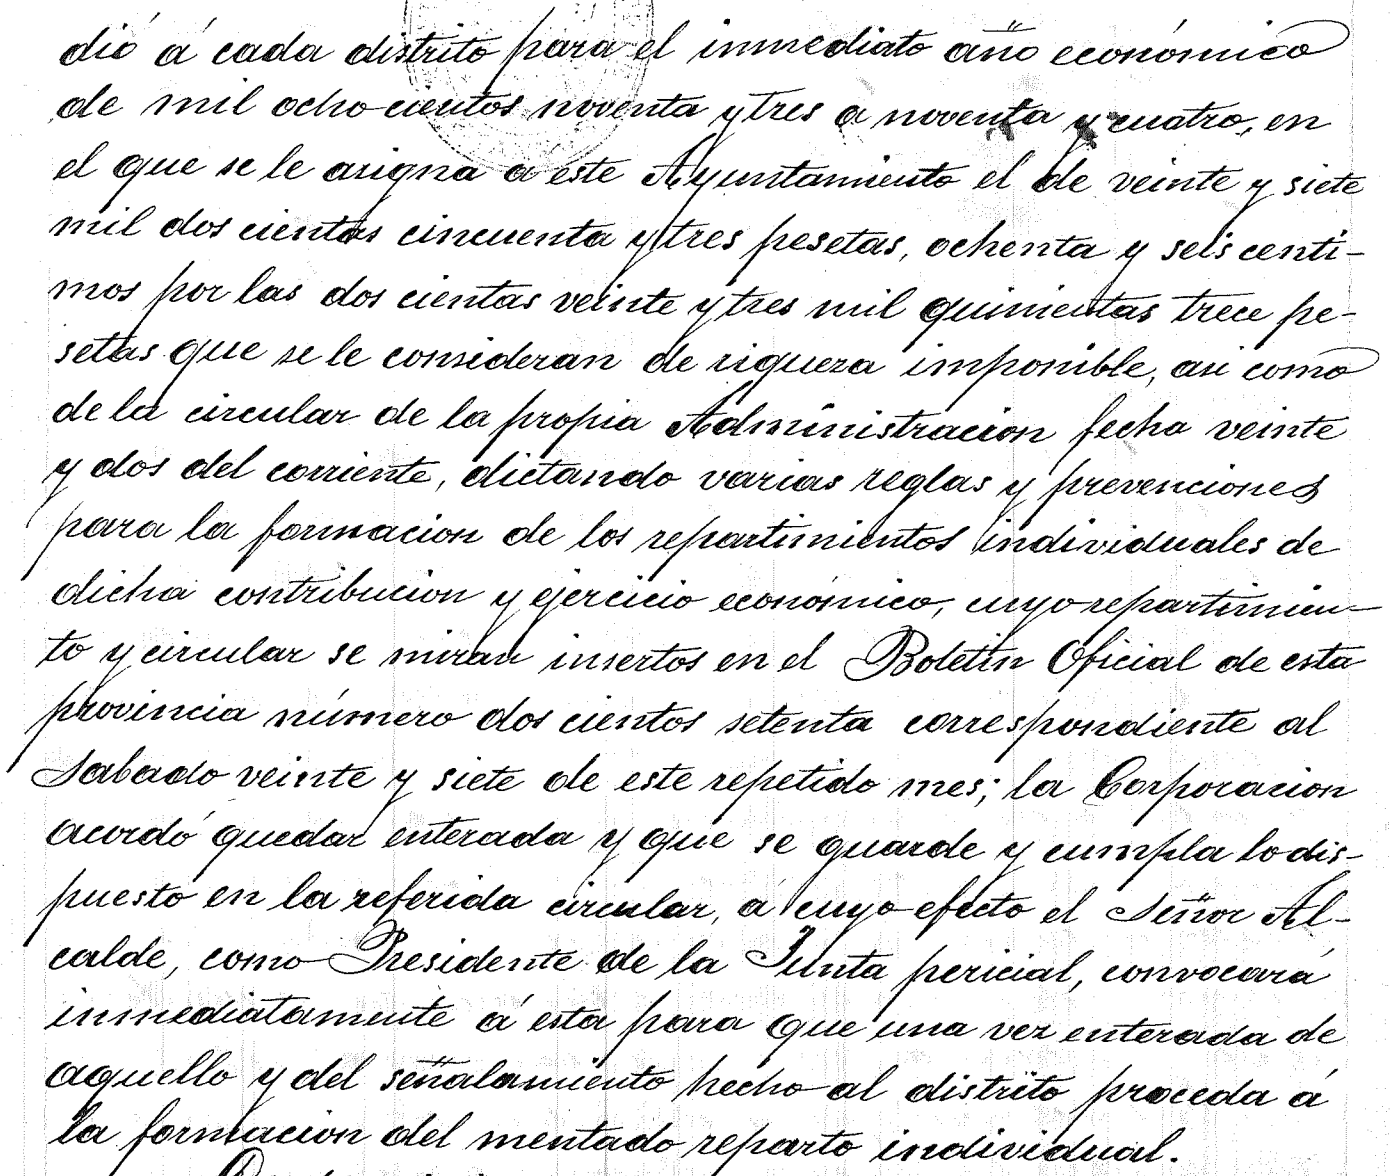 dió á cada distrito para el inmediato año económico
de mil ocho cientos noventa y tres a noventa y cuatro, en
el que se le asigna a este Ayuntamiento el de veinte y siete
mil dos cientas cincuenta y tres pesetas, ochenta y seis centi-
mos por las dos cientas veinte y tres mil quinientas trece pe-
setas que se le consideran de riqueza imponible, asi como
de la circular de la propia Administracion fecha veinte
y dos del corriente, dictando varias reglas y prevenciones
para la formacion de los repartimientos individuales de
dicha contribucion y ejercicio económico, cuyo repartimien-
to y circular se miran insertos en el Boletin Oficial de esta
provincia número dos cientos setenta correspondiente al
Sabado veinte y siete de este repetido mes; la Corporacion
acordó quedar enterada y que se guarde y cumpla lo dis-
puesto en la referida circular, á cuyo efecto el Señor Al-
calde, como Presidente de la Junta pericial, convocará
inmediatamente á esta para que una vez enterada de
aquello y del señalamiento hecho al distrito proceda á
la formacion del mentado reparto individual.